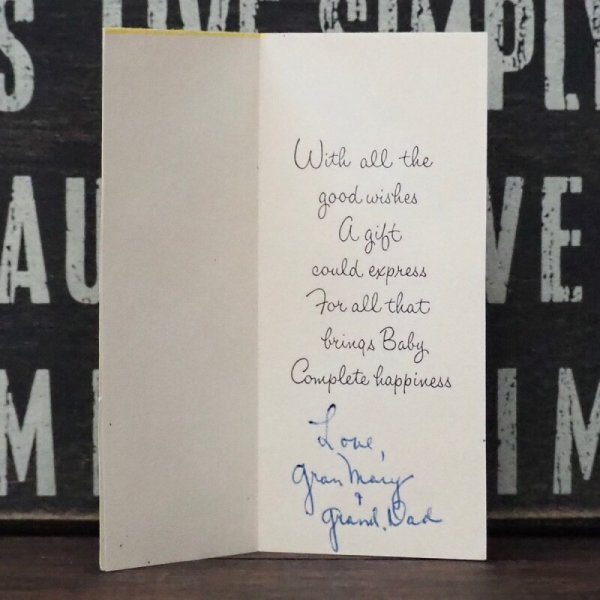 S LIVE SIMPLY
With all the
good wishes
A gift
could express
For all that
brings Baby
Complete happiness
Love,
Gran Mary
+
Grand Dad
AU
VE
M
IM